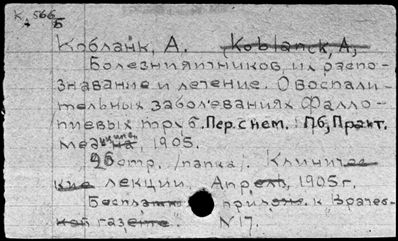 К 566
Б
Кобланк, А. Koblanck, A,
Болезни яичников, их распо-
знавание и лечение. О воспали-
тельных заболеваниях Фалло-
пиевых труб. Пер. с нем. Пб, Практ.
медицина, 1905.
26 стр. /папка/. Клиничес-
кие лекции, Апрель, 1905 г.
Бесплатное прилож. к Врачеб-
ной газете. N 17.